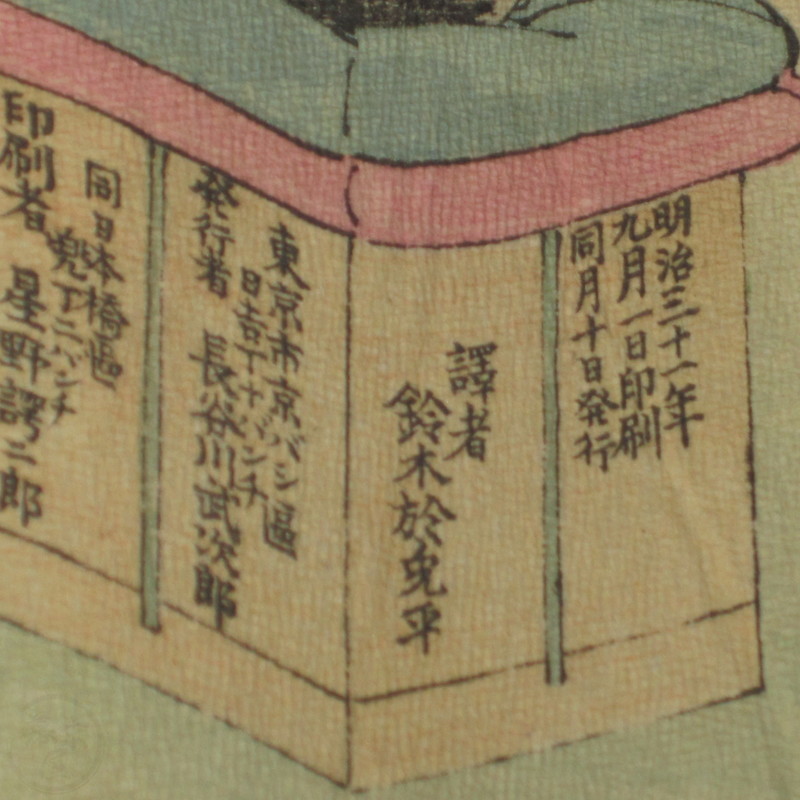 明治三十一年
九月一日印刷
同月十日発行
譯者
鈴木於兎平
東京市京バシ區
日吉丁十バンチ
発行者 長谷川武次郎
同日本橋區
兜丁二バンチ
印刷者 星野諤二郎